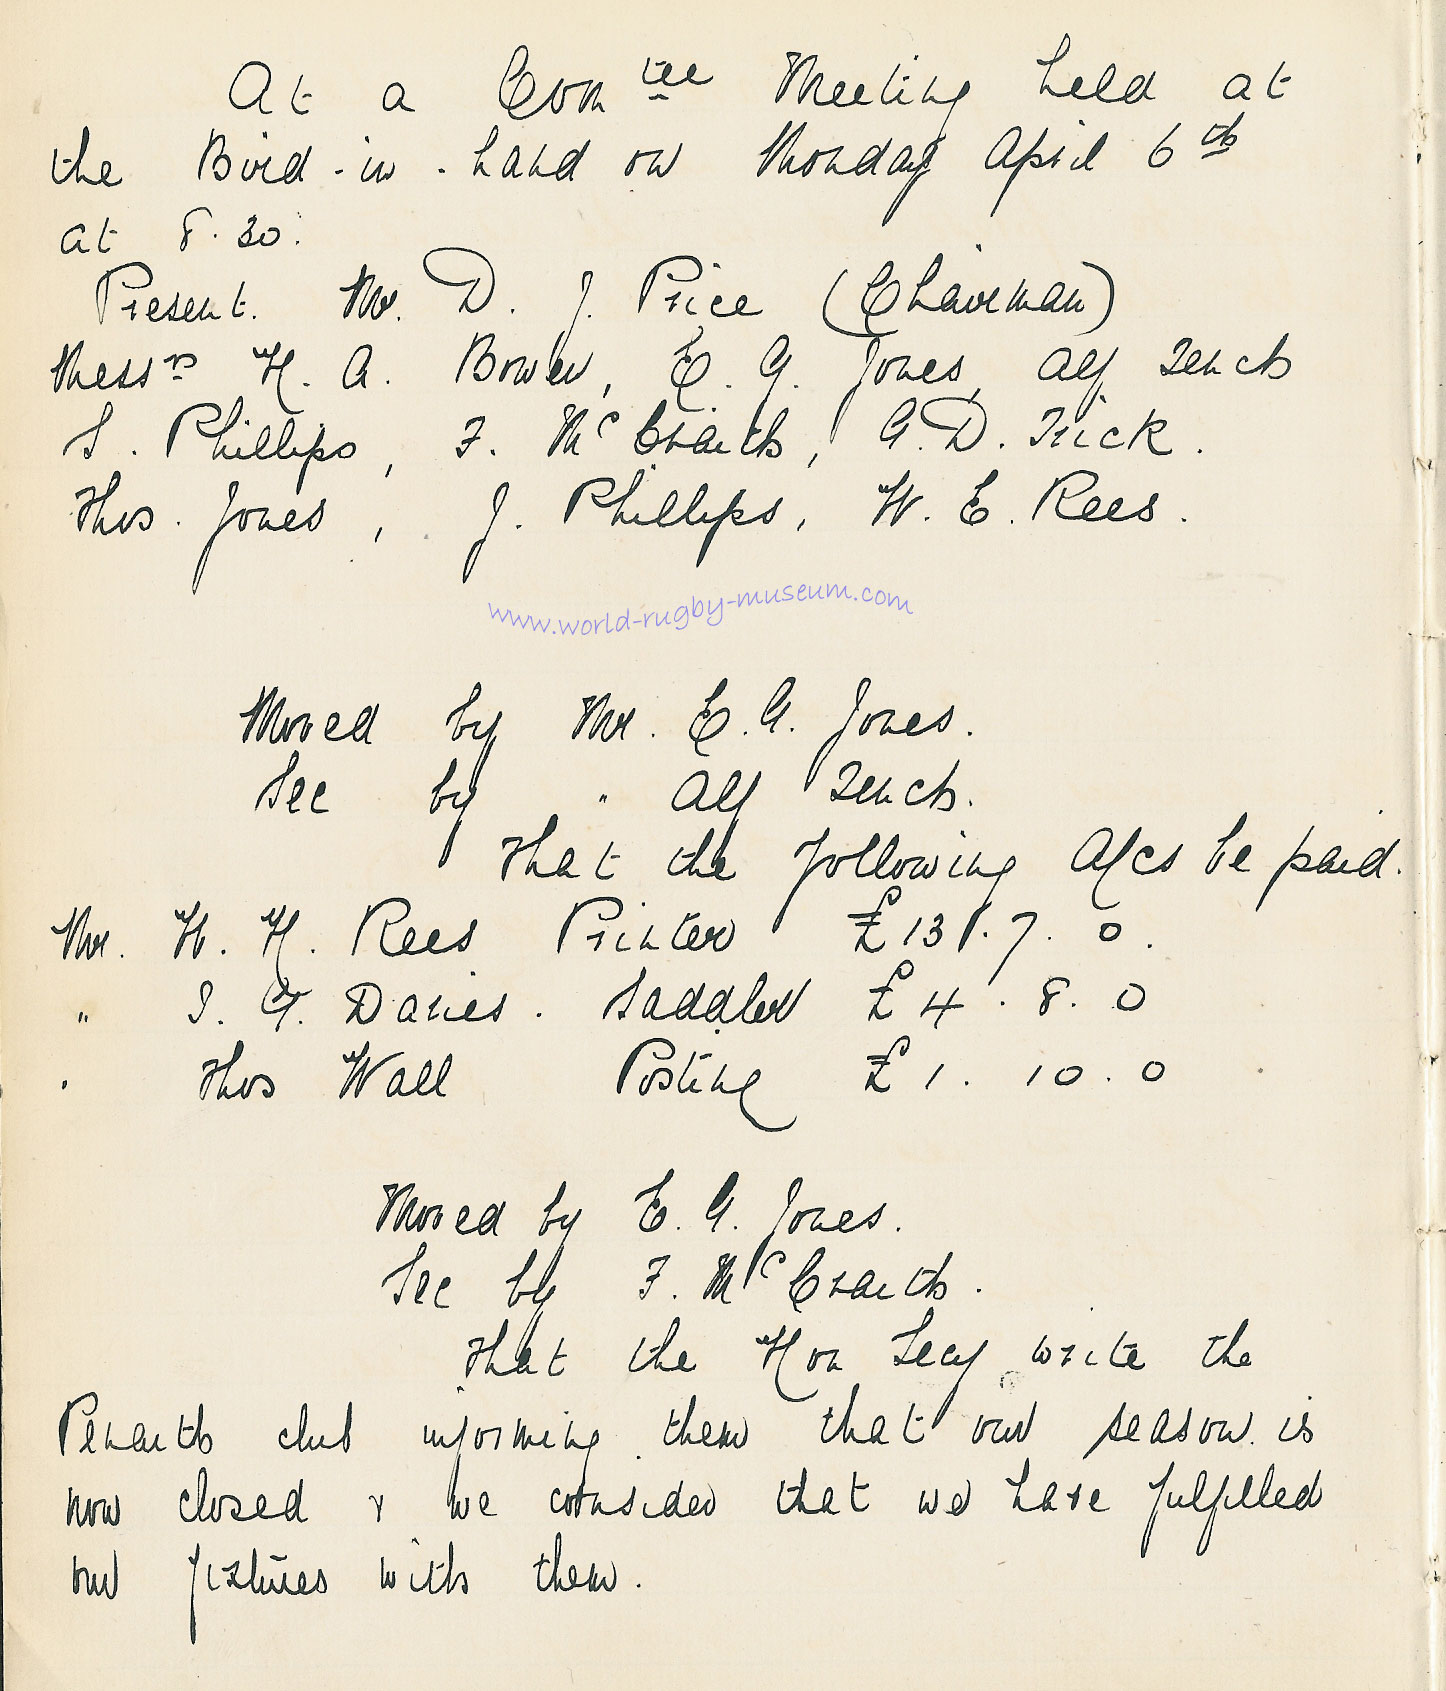 At a Com tee Meeting held at
the Bird-in-hand on Monday April 6th
at 8.30.
Present. Mr. D. J. Price (Chairman)
Messrs H. A. Bowen, E. G. Jones, Alf Tench
S. Phillips, F. McCraith, G. D. Trick.
Thos. Jones, J. Phillips, W. E. Rees.
www.world-rugby-museum.com
Moved by Mr. E. G. Jones.
Sec by " Alf Tench.
That the following A/cs be paid.
Mr. W. H. Rees Printer £13.7.0.
" Davies. Saddler £4.8.0
" Thos Wall Posting £1.10.0
Moved by E. G. Jones.
Sec by F. McCraith.
That the Hon Secy write the
Penarth club informing them that our season is
now closed & we consider that we have fulfilled
our fixtures with them.